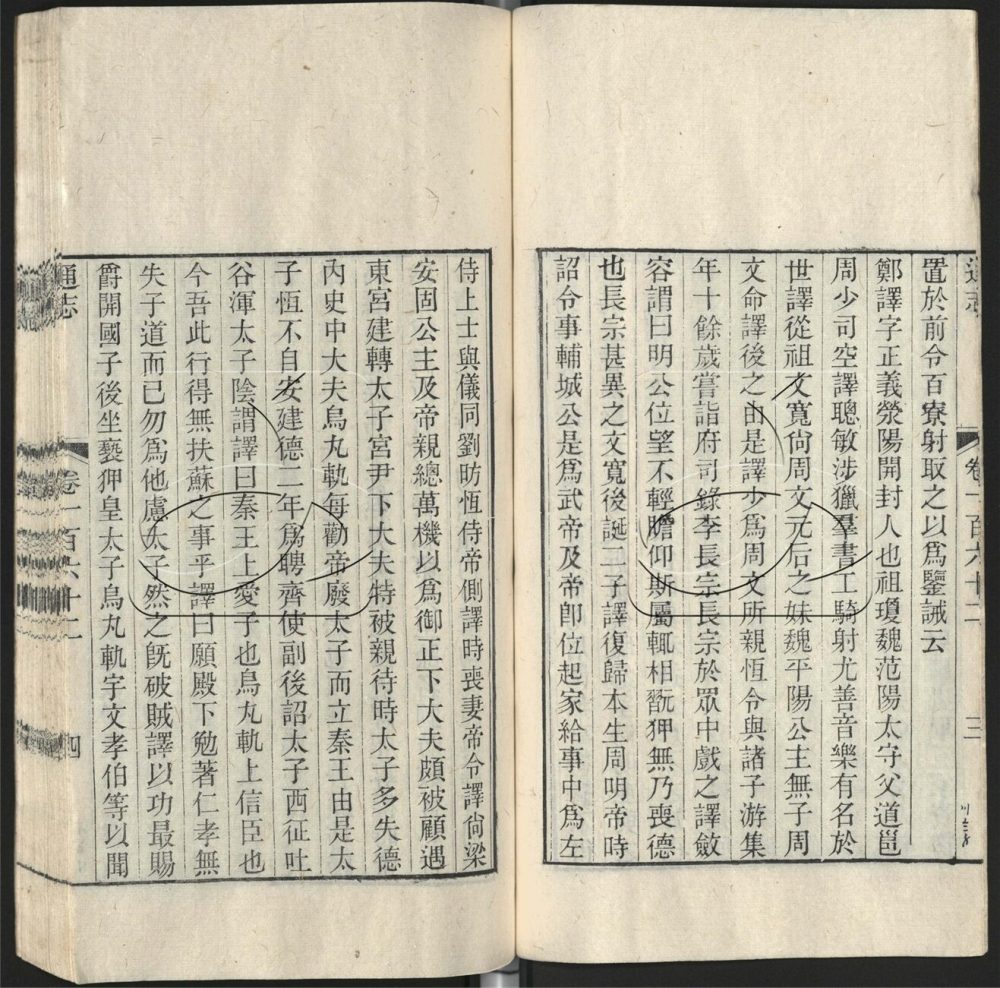 通志 卷一百六十二 三
置於前令百寮射取之以爲鑒誡云
鄭譯字正義滎陽開封人也祖瓊魏范陽太守父道邕
周少司空譯聰敏涉獵羣書工騎射尤善音樂有名於
世譯從祖文寬尙周文元后之妹魏平陽公主無子周
文命譯後之由是譯少爲周文所親恆令與諸子游集
年十餘歲嘗詣府司錄李長宗長宗於眾中戲之譯斂
容謂曰明公位望不輕瞻仰斯屬輒相翫狎無乃喪德
也長宗甚異之文寬後誕二子譯復歸本生周明帝時
詔令事輔城公是爲武帝及帝卽位起家給事中爲左
侍上士與儀同劉昉恆侍帝側譯時喪妻帝令譯尙梁
安固公主及帝親總萬機以爲御正下大夫頗被顧遇
東宮建轉太子宮尹下大夫特被親待時太子多失德
內史中大夫烏丸軌每勸帝廢太子而立秦王由是太
子恆不自安建德二年爲聘齊使副後詔太子西征吐
谷渾太子陰謂譯曰秦王上愛子也烏丸軌上信臣也
今吾此行得無扶蘇之事乎譯曰願殿下勉著仁孝無
失子道而已勿爲他慮太子然之旣破賊譯以功最賜
爵開國子後坐褻狎皇太子烏丸軌宇文孝伯等以聞
通志 卷一百六十二 四